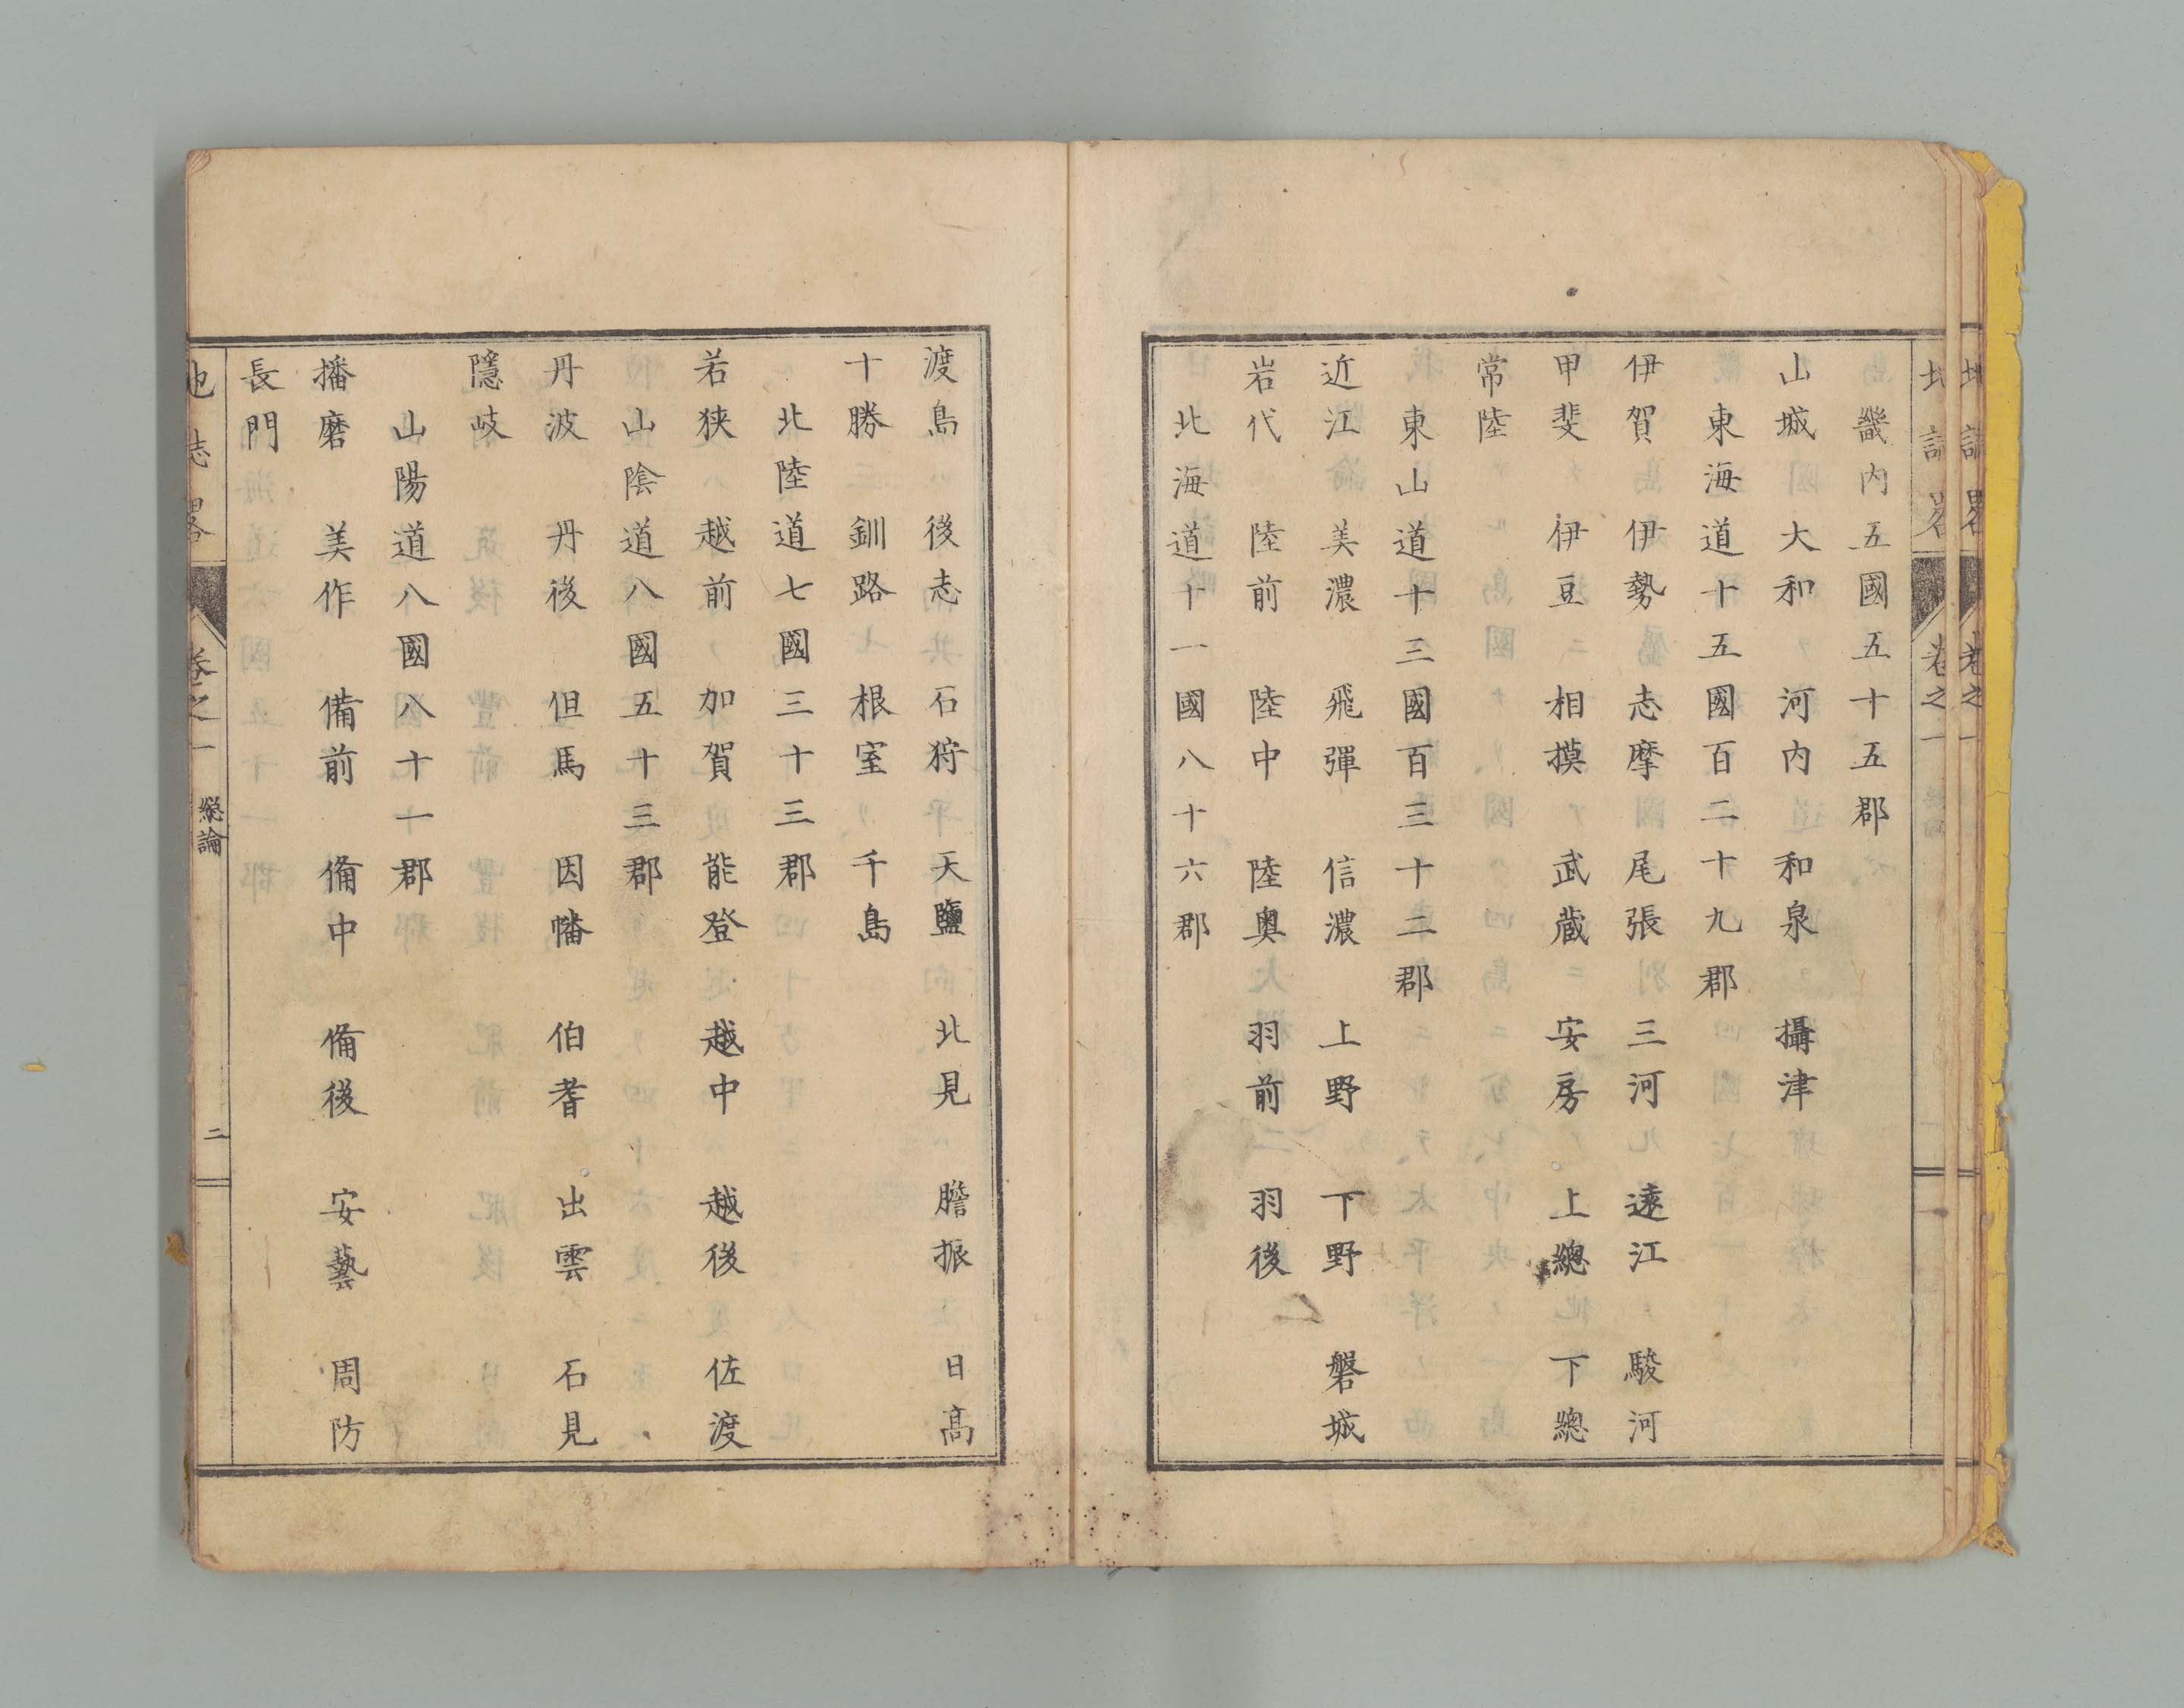 畿內五國五十五郡
山城　大和　河内　和泉　攝津
東海道十五國百二十九郡
伊賀　伊勢　志摩　尾張　三河　遠江　駿河
甲斐　伊豆　相摸　武蔵　安房　上總　下總
常陸
東山道十三國百三十二郡
近江　美濃　飛彈　信濃　上野　下野　磐城
岩代　陸前　陸中　陸奥　羽前　羽後
北海道十一國八十六郡
渡島　後志　石狩　天鹽　北見　膽振　日高
十勝　釧路　根室　千島
北陸道七國三十三郡
若狭　越前　加賀　能登　越中　越後　佐渡
山陰道八國五十三郡
丹波　丹後　但馬　因幡　伯耆　出雲　石見
隱岐
山陽道八國八十一郡
播磨　美作　備前　備中　備後　安藝　周防
長門
地誌畧　卷之一　總論　二